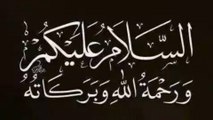 السَّلَامُ عَلَيْكُمْ
وَرَحْمَةُ اللهِ وَبَرَكَاتُهُ